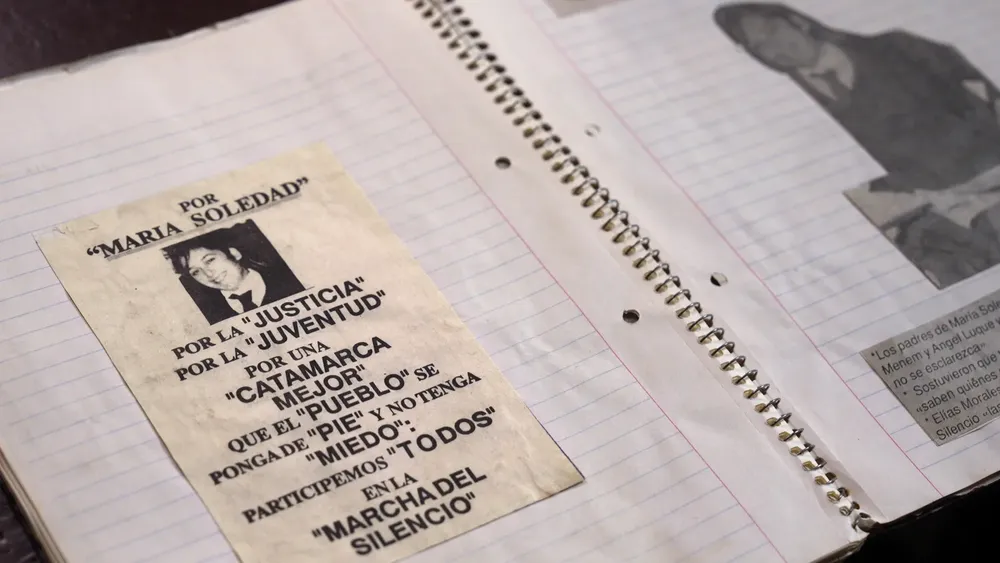 POR
"MARIA SOLEDAD"
POR LA "JUSTICIA"
POR LA "JUVENTUD"
POR UNA
"CATAMARCA
MEJOR"
QUE EL "PUEBLO" SE
PONGA DE "PIE" Y NO TENGA
"MIEDO":
PARTICIPEMOS "TODOS"
EN LA
"MARCHA DEL
SILENCIO"
*Los padres de María Sole
Menem y Angel Luque
no se esclarezca»
* Sostuvieron que
«saben quiénes
* Elías Morale
Silencio «la